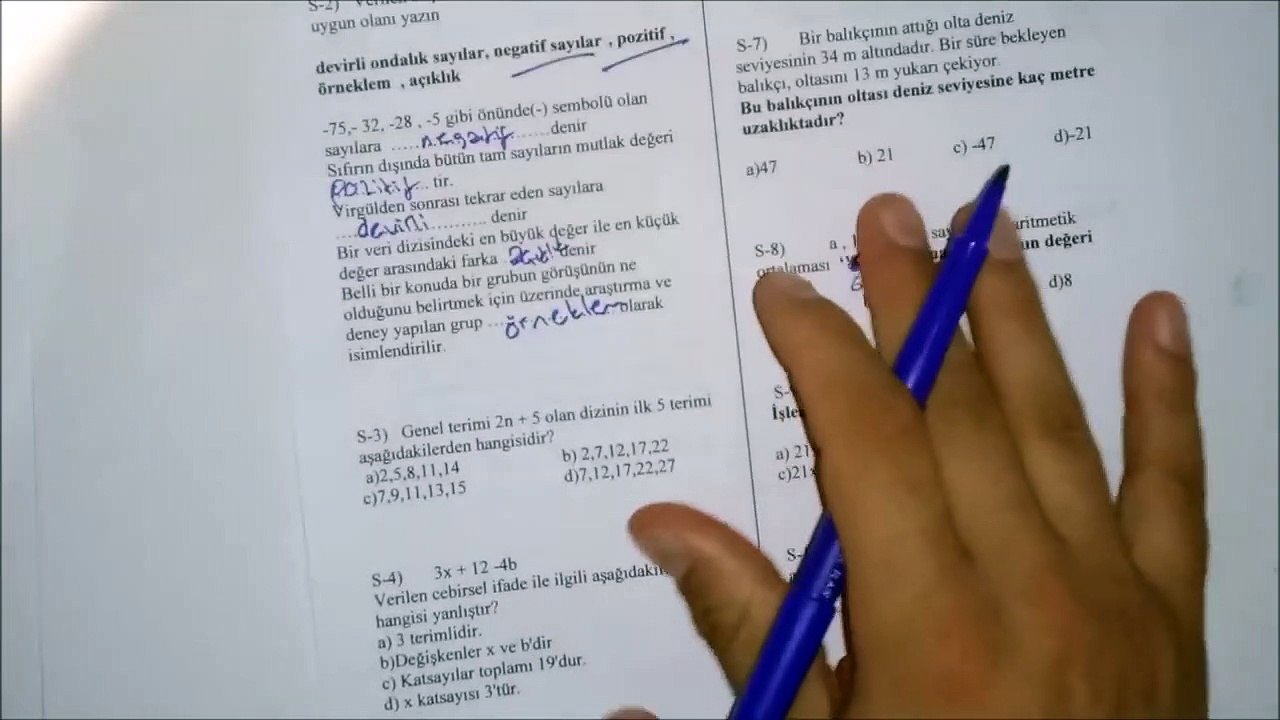 S-2)
uygun olanı yazın
devirli ondalık sayılar, negatif sayılar , pozitif ,
örneklem , açıklık
-75,- 32, -28 , -5 gibi önünde(-) sembolü olan
sayılara ..... negatif ...... denir
Sıfırın dışında bütün tam sayıların mutlak değeri
pozitif .. tir.
Virgülden sonrası tekrar eden sayılara
... devirli .......... denir
Bir veri dizisindeki en büyük değer ile en küçük
değer arasındaki farka açıklık denir
Belli bir konuda bir grubun görüşünün ne
olduğunu belirtmek için üzerinde araştırma ve
deney yapılan grup ... örneklem olarak
isimlendirilir.
S-3) Genel terimi 2n + 5 olan dizinin ilk 5 terimi
aşağıdakilerden hangisidir?
a)2,5,8,11,14 b) 2,7,12,17,22
c)7,9,11,13,15 d)7,12,17,22,27
S-4) 3x + 12 -4b
Verilen cebirsel ifade ile ilgili
hangisi yanlıştır?
a) 3 terimlidir.
b)Değişkenler x ve b'dir
c) Katsayılar toplamı 19'dur.
d) x katsayısı 3'tür.
S-7) Bir balıkçının attığı olta deniz
seviyesinin 34 m altındadır. Bir süre bekleyen
balıkçı, oltasını 13 m yukarı çekiyor.
Bu balıkçının oltası deniz seviyesine kaç metre
uzaklıktadır?
a)47 b) 21 c) -47 d)-21
S-8) a ,
ortalaması değeri
d)8
a) 21
c)21